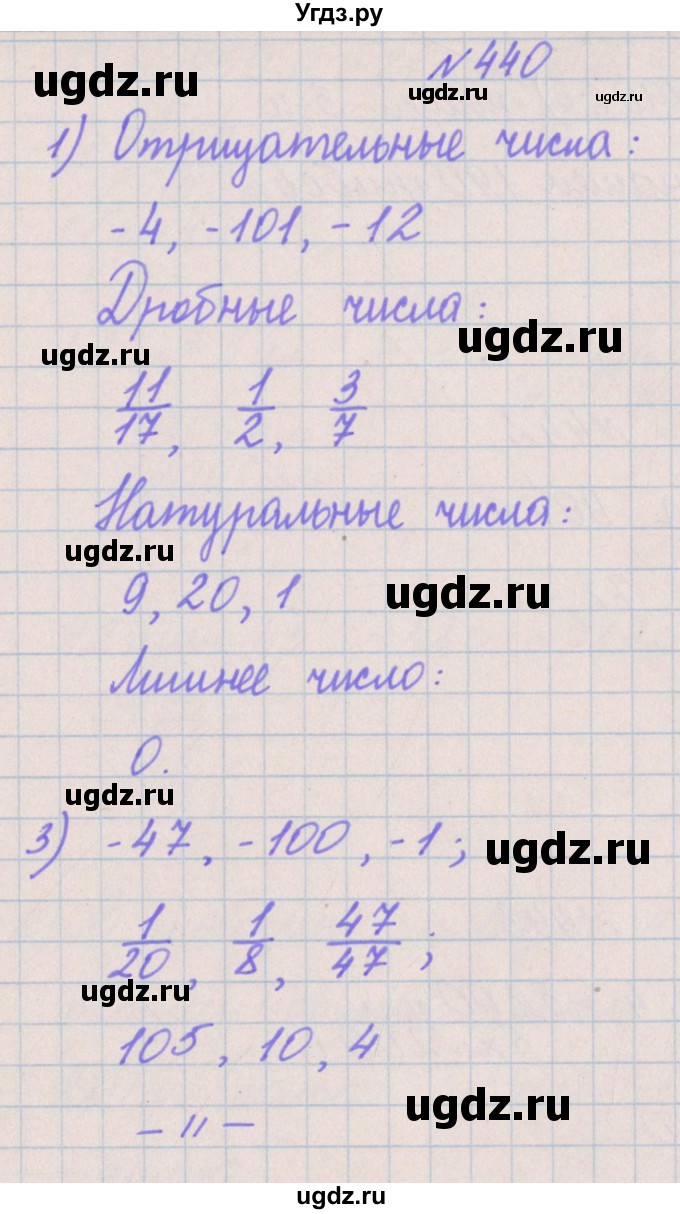 Угдз.ру
ugdz.ru
№440
ugdz.ru
ugdz.ru
1) Отрицательные числа:
-4, -101, -12
Дробные числа:
ugdz.ru
ugdz.ru
11/17, 1/2, 3/7
Натуральные числа:
ugdz.ru
9, 20, 1
ugdz.ru
Лишнее число:
0.
ugdz.ru
3) -47, -100, -1;
ugdz.ru
1/20, 1/8, 47/47;
ugdz.ru
105, 10, 4
ugdz.ru
- 11 -
ugdz.ru